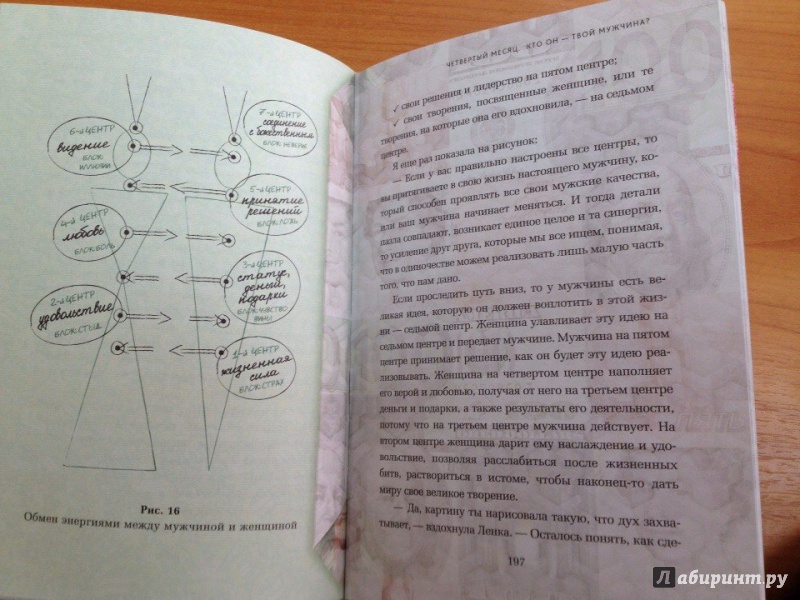 6-й ЦЕНТР
видение
БЛОК:
ИЛЛЮЗИИ
7-й ЦЕНТР
соединение
с божественным
БЛОК:
4-й ЦЕНТР
любовь
БЛОК:БОЛЬ
5-й ЦЕНТР
принятие
решений
БЛОК:ЛОЖЬ
2-й ЦЕНТР
удовольствие
БЛОК:СТЫД
3-й ЦЕНТР
статус,
деньги,
подарки
БЛОК:ЧУВСТВО
ВИНЫ
1-й ЦЕНТР
жизненная
сила
БЛОК:СТРАХ
Рис. 16
Обмен энергиями между мужчиной и женщиной
ЧЕТВЕРТЫЙ МЕСЯЦ. КТО ОН — ТВОЙ МУЖЧИНА?
✓ свои решения и лидерство на пятом центре;
✓ свои творения, посвященные женщине, или те
творения, на которые она его вдохновила, — на седьмом
центре.
Я еще раз показала на рисунок:
— Если у вас правильно настроены все центры, то
вы притягиваете в свою жизнь настоящего мужчину, ко-
торый способен проявлять все свои мужские качества,
или ваш мужчина начинает меняться. И тогда детали
пазла совпадают, возникает единое целое и та синергия,
то усиление друг друга, которые мы все ищем, понимая,
что в одиночестве можем реализовать лишь малую часть
того, что нам дано.
Если проследить путь вниз, то у мужчины есть ве-
ликая идея, которую он должен воплотить в этой жиз-
ни — седьмой центр. Женщина улавливает эту идею на
седьмом центре и передает мужчине. Мужчина на пятом
центре принимает решение, как он будет эту идею реа-
лизовывать. Женщина на четвертом центре наполняет
его верой и любовью, получая от него на третьем центре
деньги и подарки, а также результаты его деятельности,
потому что на третьем центре мужчина действует. На
втором центре женщина дарит ему наслаждение и удо-
вольствие, позволяя расслабиться после жизненных
битв, раствориться в истоме, чтобы наконец-то дать
миру свое великое творение.
— Да, картину ты нарисовала такую, что дух захва-
тывает, — вздохнула Ленка. — Осталось понять, как сде-
197
Лабиринт.ру